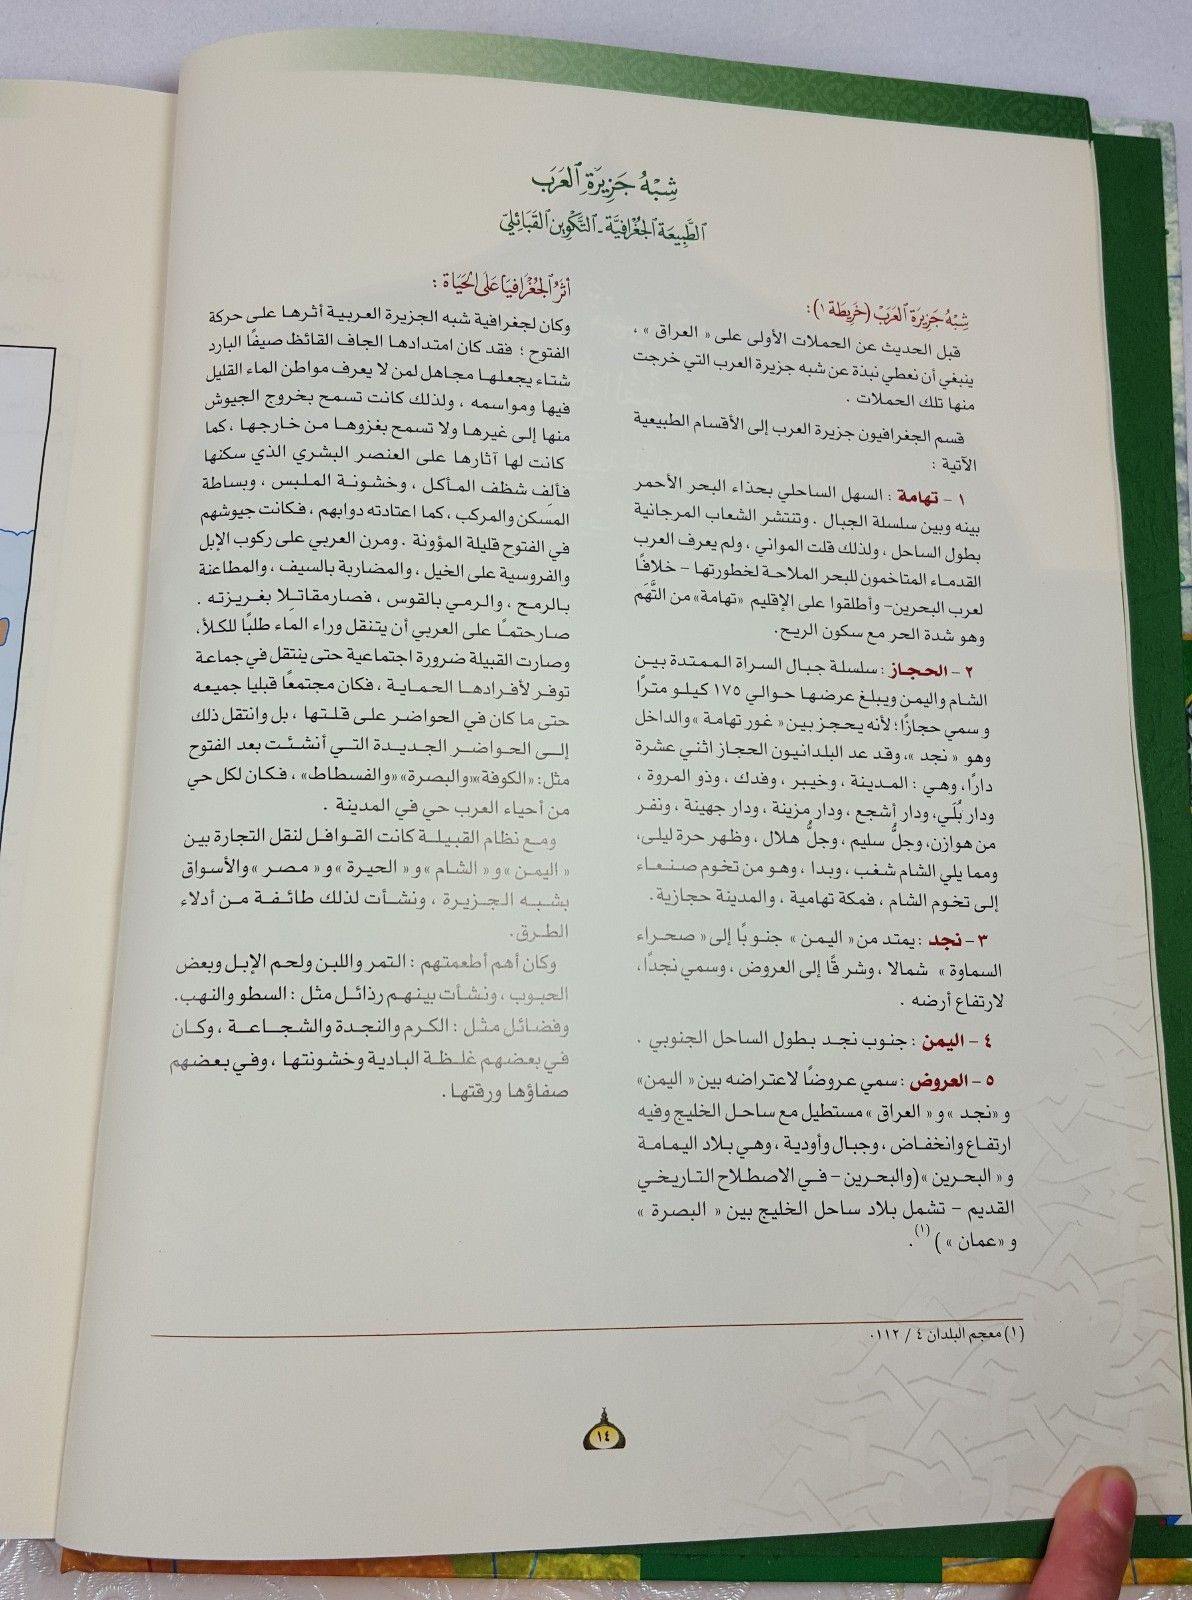 شِبْهُ جَزِيرَةِ الْعَرَبِ
الطَّبِيعَة الجُغْرَافِيَّة - التَّكْوِين القَبَائِليّ
شِبْهُ جَزِيرَة الْعَرَبْ (خَرِيطَة ١) :
قبل الحديث عن الحملات الأولى على « العراق » ،
ينبغي أن نعطي نبذة عن شبه جزيرة العرب التي خرجت
منها تلك الحملات .
قسم الجغرافيون جزيرة العرب إلى الأقسام الطبيعية
الآتية :
١ - تهامة : السهل الساحلي بحذاء البحر الأحمر
بينه وبين سلسلة الجبال . وتنتشر الشعاب المرجانية
بطول الساحل ، ولذلك قلت المواني ، ولم يعرف العرب
القدماء المتاخمون للبحر الملاحة لخطورتها - خلافًا
لعرب البحرين- وأطلقوا على الإقليم «تهامة» من التَّهَم
وهو شدة الحر مع سكون الريح.
٢ - الحجاز : سلسلة جبال السراة الممتدة بين
الشام واليمن ويبلغ عرضها حوالي ١٧٥ كيلو مترًا
و سمي حجازًا ؛ لأنه يحجز بين « غور تهامة » والداخل
وهو « نجد »، وقد عد البلدانيون الحجاز اثني عشرة
دارًا ، وهي : المدينة ، وخيبر ، وفدك ، وذو المروة ،
ودار بُلَي، ودار أشجع ، ودار مزينة ، ودار جهينة ، ونفر
من هوازن، وجلُّ سليم ، وجلُّ هلال ، وظهر حرة ليلى،
ومما يلي الشام شغب ، وبدا ، وهو من تخوم صنعاء
إلى تخوم الشام ، فمكة تهامية ، والمدينة حجازية .
٣ - نجد : يمتد من « اليمن » جنوبًا إلى « صحراء
السماوة » شمالا ، وشرقًا إلى العروض ، وسمي نجدًا ،
لارتفاع أرضه .
٤ - اليمن : جنوب نجد بطول الساحل الجنوبي .
٥ - العروض : سمي عروضًا لاعتراضه بين « اليمن»
و «نجد » و « العراق » مستطيل مع ساحل الخليج وفيه
ارتفاع وانخفاض ، وجبال وأودية ، وهي بلاد اليمامة
و « البحرين » (والبحرين - في الاصطلاح التاريخي
القديم - تشمل بلاد ساحل الخليج بين « البصرة »
و «عمان » ) (١).
أثَرُ الجُغْرَافِيَا عَلَى الحَيَاة :
وكان لجغرافية شبه الجزيرة العربية أثرها على حركة
الفتوح ؛ فقد كان امتدادها الجاف القائظ صيفًا البارد
شتاء يجعلها مجاهل لمن لا يعرف مواطن الماء القليل
فيها ومواسمه ، ولذلك كانت تسمح بخروج الجيوش
منها إلى غيرها ولا تسمح بغزوها من خارجها ، كما
كانت لها آثارها على العنصر البشري الذي سكنها
فألِف شظف المأكل ، وخشونة الملبس ، وبساطة
المسكن والمركب ، كما اعتادته دوابهم ، فكانت جيوشهم
في الفتوح قليلة المؤونة . ومرن العربي على ركوب الإبل
والفروسية على الخيل ، والمضاربة بالسيف ، والمطاعنة
بالرمح ، والرمي بالقوس ، فصار مقاتلا بغريزته .
صار حتمًا على العربي أن يتنقل وراء الماء طلبًا للكلأ،
وصارت القبيلة ضرورة اجتماعية حتى ينتقل في جماعة
توفر لأفرادها الحماية ، فكان مجتمعًا قبليا جميعه
حتى ما كان في الحواضر على قلتها ، بل وانتقل ذلك
إلى الحواضر الجديدة التي أنشئت بعد الفتوح
مثل: «الكوفة» «والبصرة» «والفسطاط» ، فكان لكل حي
من أحياء العرب حي في المدينة .
ومع نظام القبيلة كانت القوافل لنقل التجارة بين
« اليمن » و « الشام » و « الحيرة » و « مصر » والأسواق
بشبه الجزيرة ، ونشأت لذلك طائفة من أدلاء
الطرق.
وكان أهم أطعمتهم : التمر واللبن ولحم الإبل وبعض
الحبوب ، ونشأت بينهم رذائل مثل : السطو والنهب.
وفضائل مثل : الكرم والنجدة والشجاعة ، وكان
في بعضهم غلظة البادية وخشونتها ، وفي بعضهم
صفاؤها ورقتها .
(١) معجم البلدان ٤ / ١١٢٠
١٤